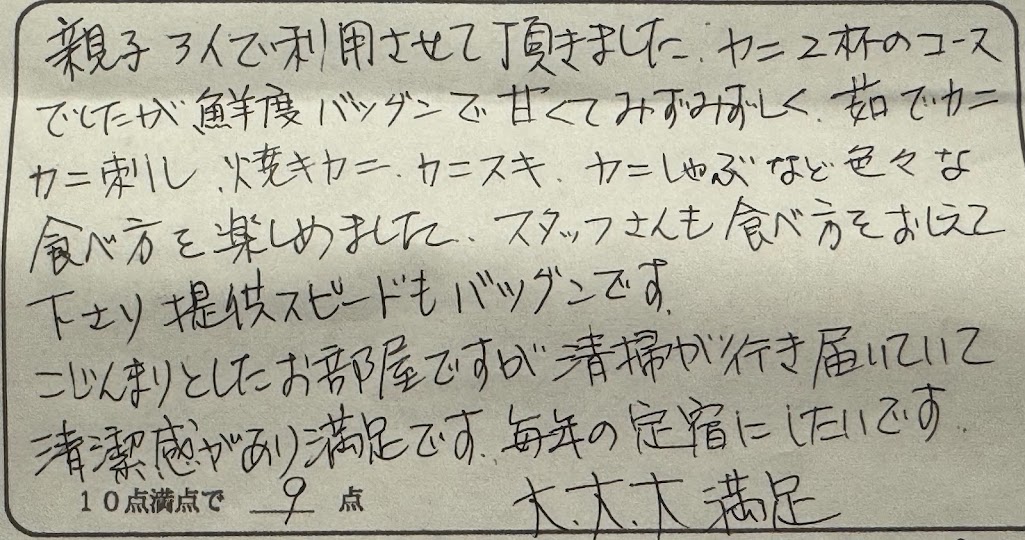 親子3人で利用させて頂きました、カニ2杯のコース
でしたが鮮度バツグンで甘くてみずみずしく、茹でカニ
カニ刺し、焼きカニ、カニスキ、カニしゃぶなど色々な
食べ方を楽しめました、スタッフさんも食べ方をおしえて
下さり提供スピードもバツグンです。
こじんまりとしたお部屋ですが清掃が行き届いていて
清潔感があり満足です。毎年の定宿にしたいです。
10点満点で 9 点 大、大、大満足